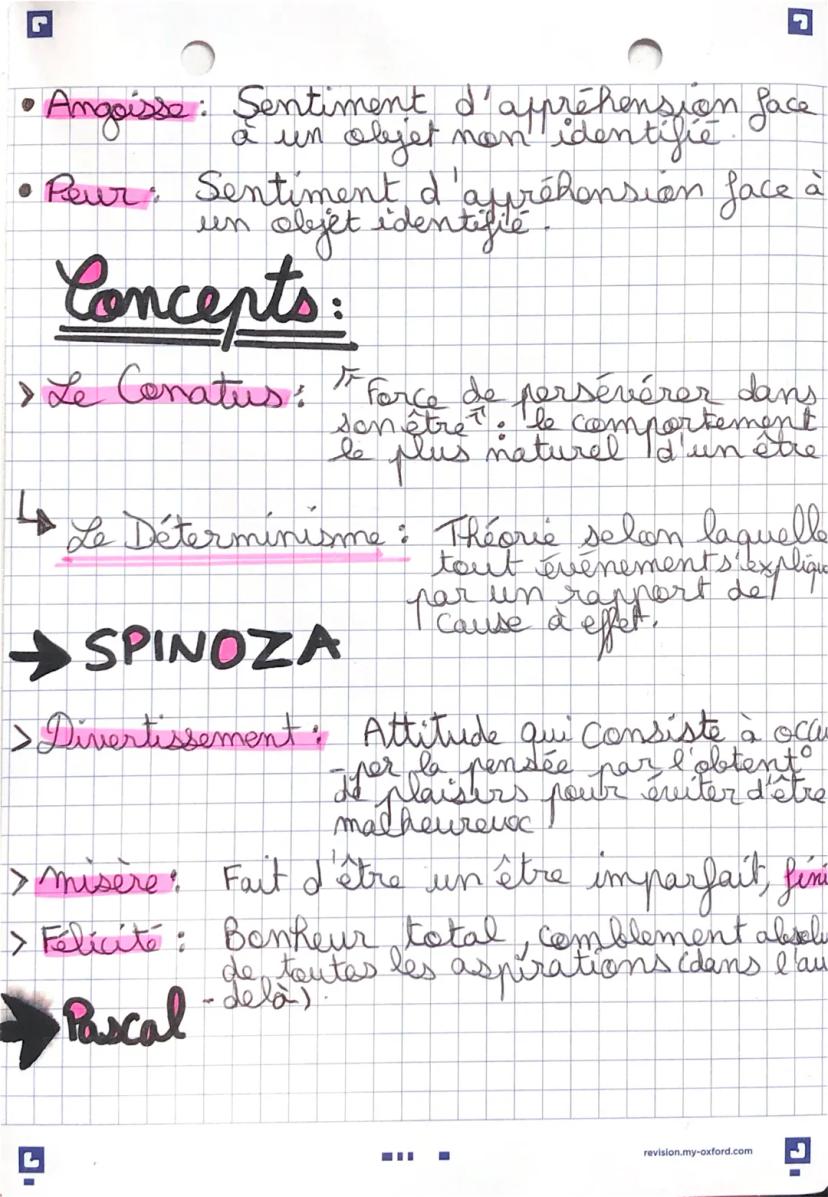 • Angoisse : Sentiment d'appréhension face
à un objet non identifié.
• Peur : Sentiment d'appréhension face à
un objet identifié.
Concepts :
> Le Conatus : "Force de persévérer dans
son être" : le comportement
le plus naturel d'un être
↳ Le Déterminisme : Théorie selon laquelle
tout événement s'explique
par un rapport de
cause à effet.
→ SPINOZA
> Divertissement : Attitude qui consiste à occu
-per la pensée par l'obtent°
de plaisirs pour éviter d'être
malheureux
> misère : Fait d'être un être imparfait, fini
> Félicité : Bonheur total, comblement absolu
de toutes les aspirations (dans l'au
-delà).
→ Pascal
revision.my-oxford.com